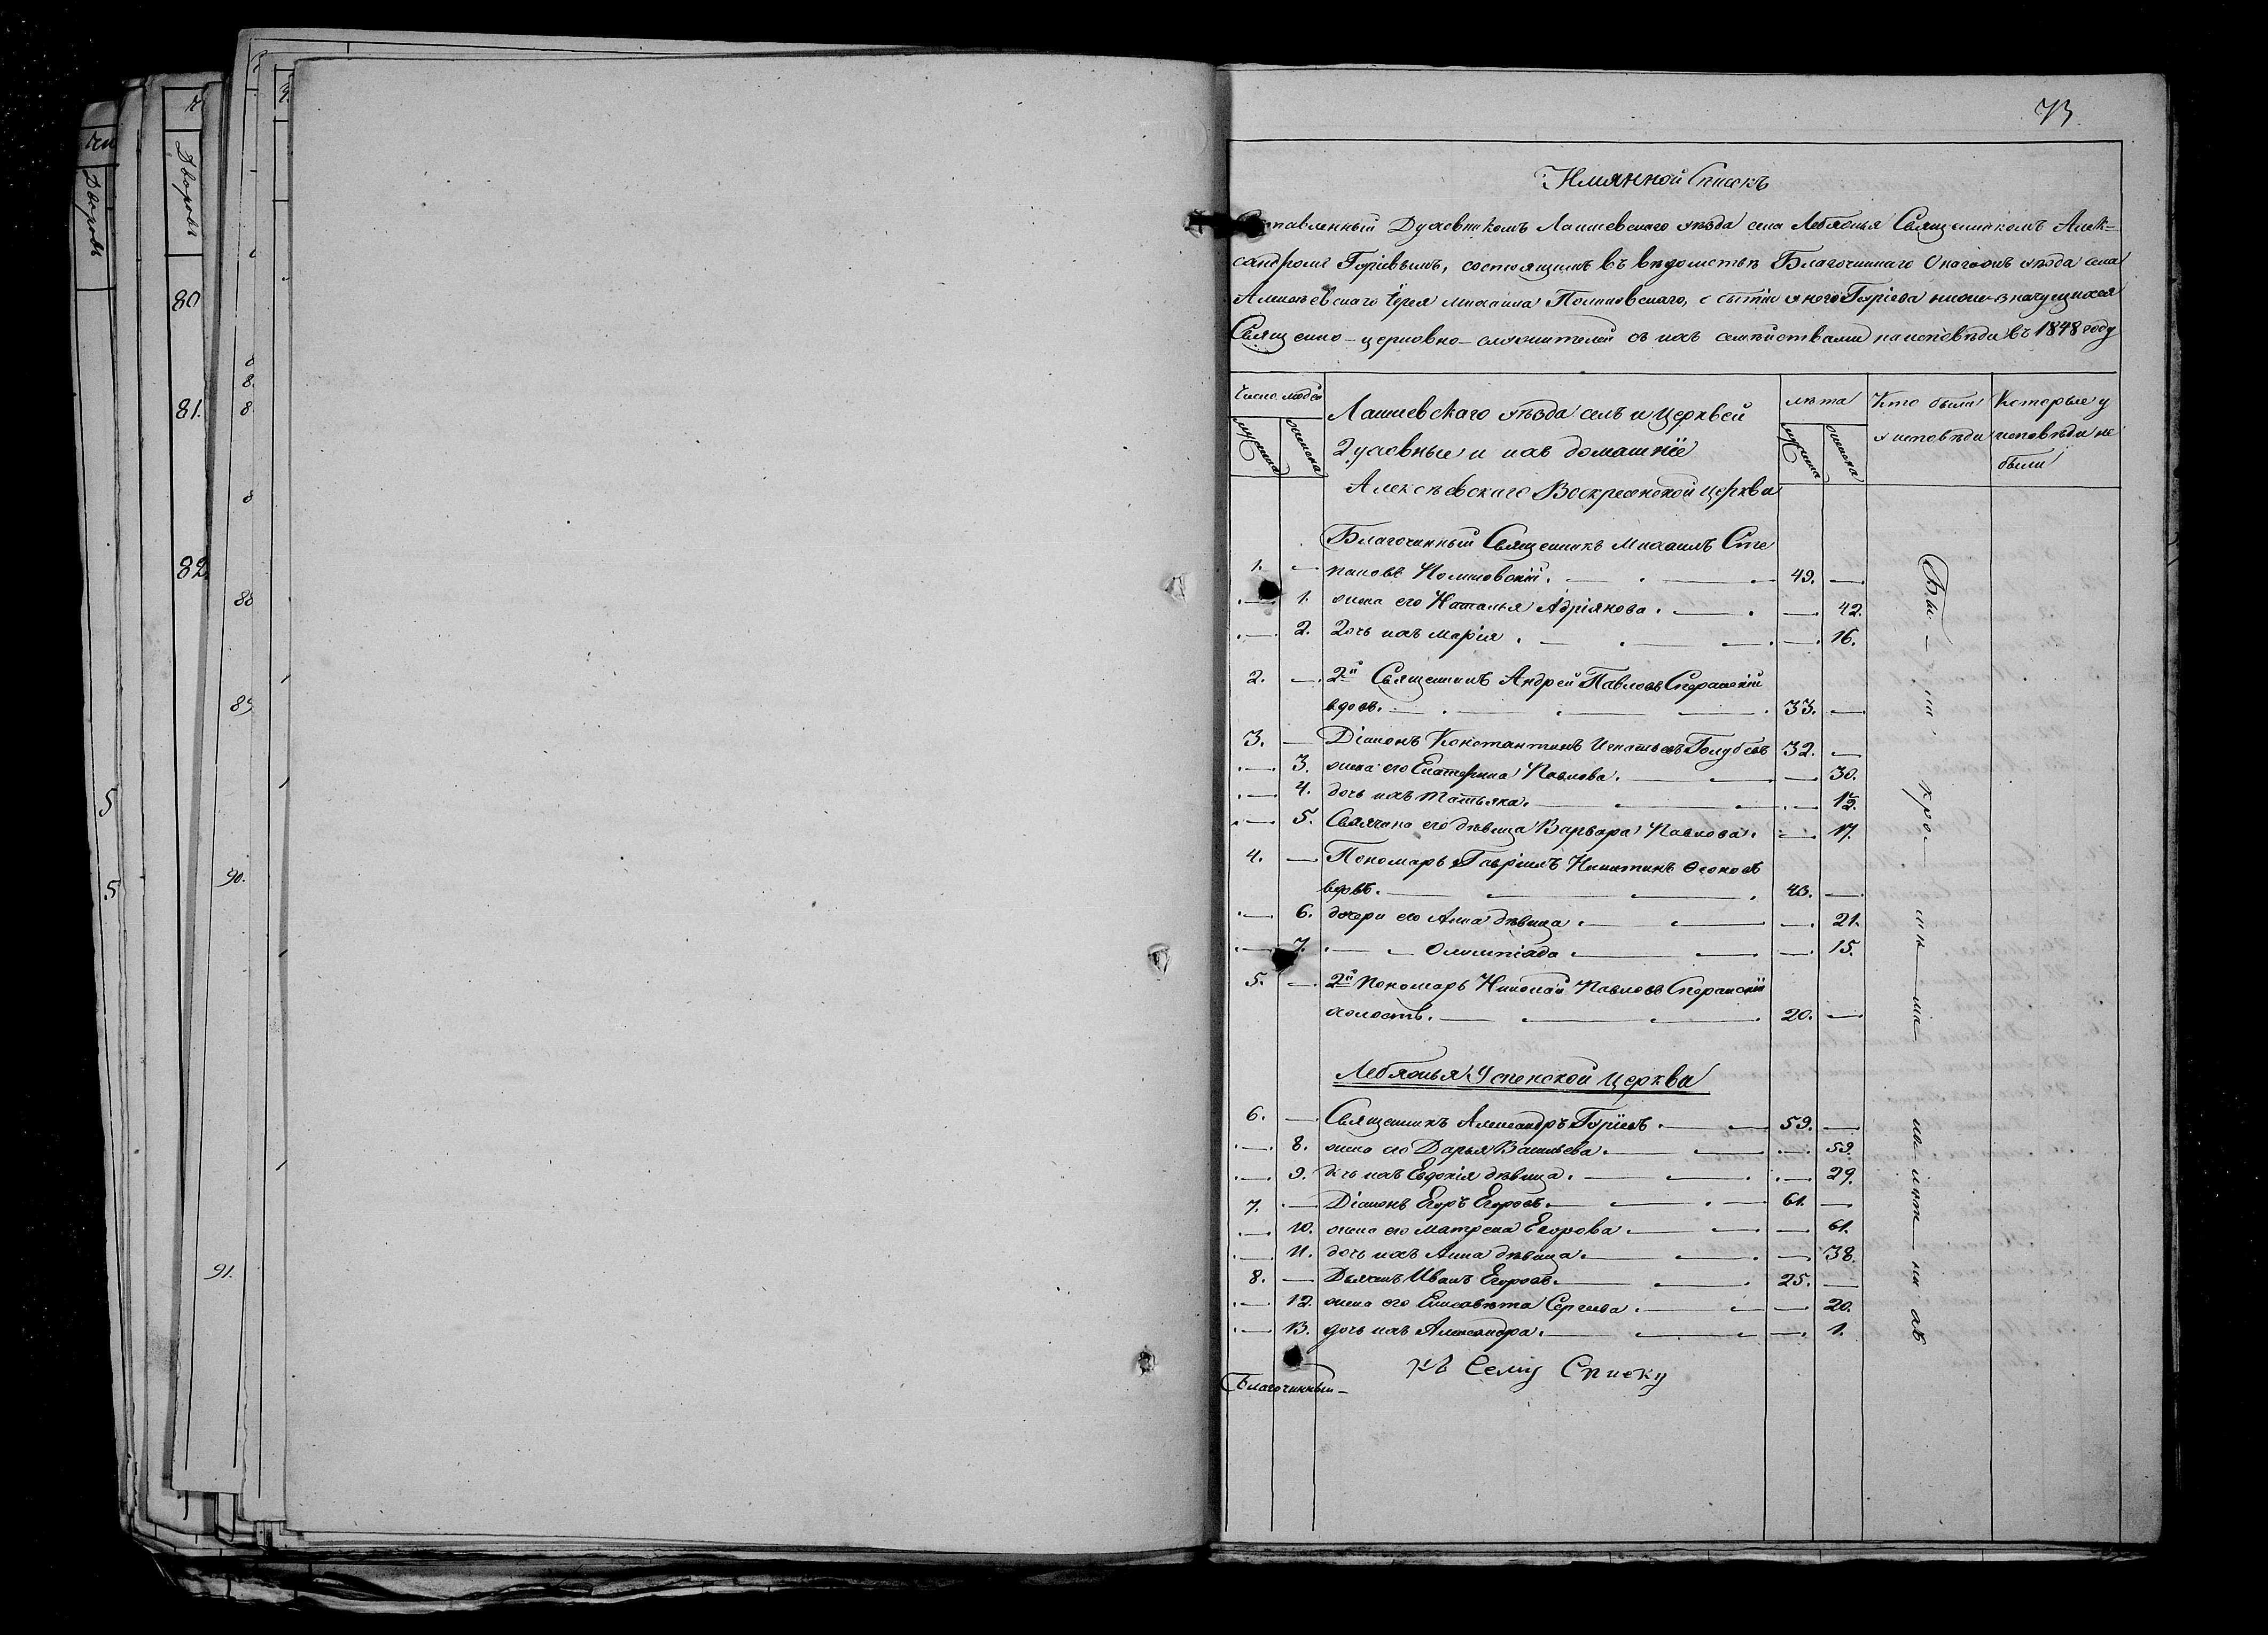 73
Имянной Списокъ
Составленный Духовникомъ Лаишевскаго уѣзда села Лебяжья Священникомъ Алек=
сандромъ Гурьевымъ, состоящимъ въ вѣдомствѣ Благочиннаго Онагожъ уѣзда села
Алексѣевскаго Іерея Михаила Полиновскаго, о бытіи у него Гурьева нижеозначущихся
Священно-церковно-служителей съ ихъ семействами на исповѣди въ 1848 году
Число людей
Лаишевскаго уѣзда селъ и Церквей
лѣта
Кто были
Которые у
мужеска
женска
Духовные и ихъ домашніе
мужеска
женска
у исповѣди
исповѣди не
были
Алексѣевскаго Воскресенской церкви
Благочинный Священникъ Михаилъ Сте
1. — пановъ 49. —
— 1. жена его Наталья Адріянова. — 42.
— 2. Дочь ихъ Марія. — 16.
2. — 2й Священникъ Андрей Павловъ Сперанскій
вдовъ. 33. —
3. — Діаконъ Константинъ Игнатьевъ Голубевъ 32. —
— 3. жена его Екатерина Павлова. — 30.
— 4. дочь ихъ Татьяна. — 12.
— 5. Своячина его дѣвица Варвара Павлова. — 17.
4. — Пономарь Гавріилъ Никитинъ
вдовъ. 43. —
— 6. дочери его Анна дѣвица — 21.
— 7. — Олимпіада — 15.
5. — 2й Пономарь Николай Павловъ Сперанскій
холостъ. 20. —
Лебяжья Успенской Церкви
6. — Священникъ Александръ Гурьевъ. 59. —
— 8. жена его Дарья Васильева. — 59.
— 9. дочь ихъ Евдокія дѣвица. — 29.
7. — Діаконъ Егоръ Егоровъ. 61. —
— 10. жена его Матрена Егорова — 61.
— 11. дочь ихъ Анна дѣвица. — 38.
8. — Дьячекъ Иванъ Егоровъ. 25. —
— 12. жена его Елисавета Сергеева. — 20.
— 13. дочь ихъ Александра. — 1.
Къ Сему Списку
Благочинный —
80
81.
82.
88
89
90.
91.
5
5
Дворовъ
Дворовъ